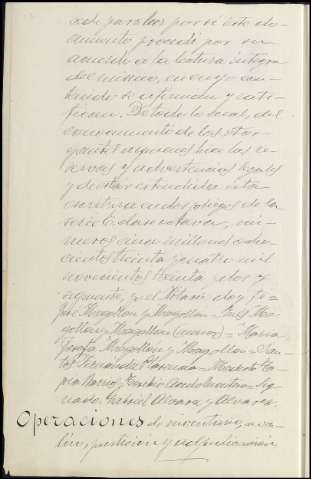 cede para leer por sí este do-
cumento procedí por su
acuerdo a la lectura íntegra
del mismo, en cuyo con-
tenido se afirman y rati-
fican. De todo lo cual, del
conocimiento de los otor-
gantes a quienes hice las re-
servas y advertencias legales
y de estar extendida esta
escritura en dos pliegos de la
serie E. clase octava, nú-
meros cinco millones ocho-
cientos treinta y cuatro mil
novecientos treinta y dos y
siguiente, yo el Notario doy fe=
José Mogollon y Mogollon= Luis Mo-
gollon y Mogollon (menor)= Maria
Josefa Mogollon y Mogollon= San-
tos Fernández
nado: Gabriel Alvarez y Alvarez.
Operaciones de inventario, ava-
lúo, partición y adjudicación